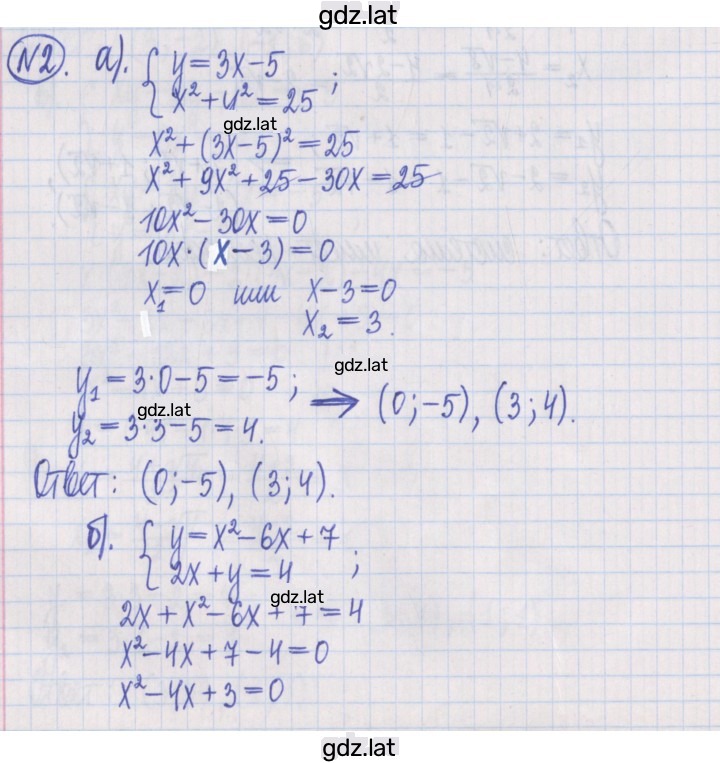 gdz.lat
N2. а). { y = 3x - 5
x² + y² = 25 ;
gdz.lat
x² + (3x - 5)² = 25
x² + 9x² + 25 - 30x = 25
10x² - 30x = 0
10x · (x - 3) = 0
x₁ = 0 или x - 3 = 0
x₂ = 3.
gdz.lat
y₁ = 3·0 - 5 = -5 ;
⟹ (0; -5), (3; 4).
gdz.lat
y₂ = 3·3 - 5 = 4.
Ответ: (0; -5), (3; 4).
б). { y = x² - 6x + 7
2x + y = 4 ;
gdz.lat
2x + x² - 6x + 7 = 4
x² - 4x + 7 - 4 = 0
x² - 4x + 3 = 0
gdz.lat